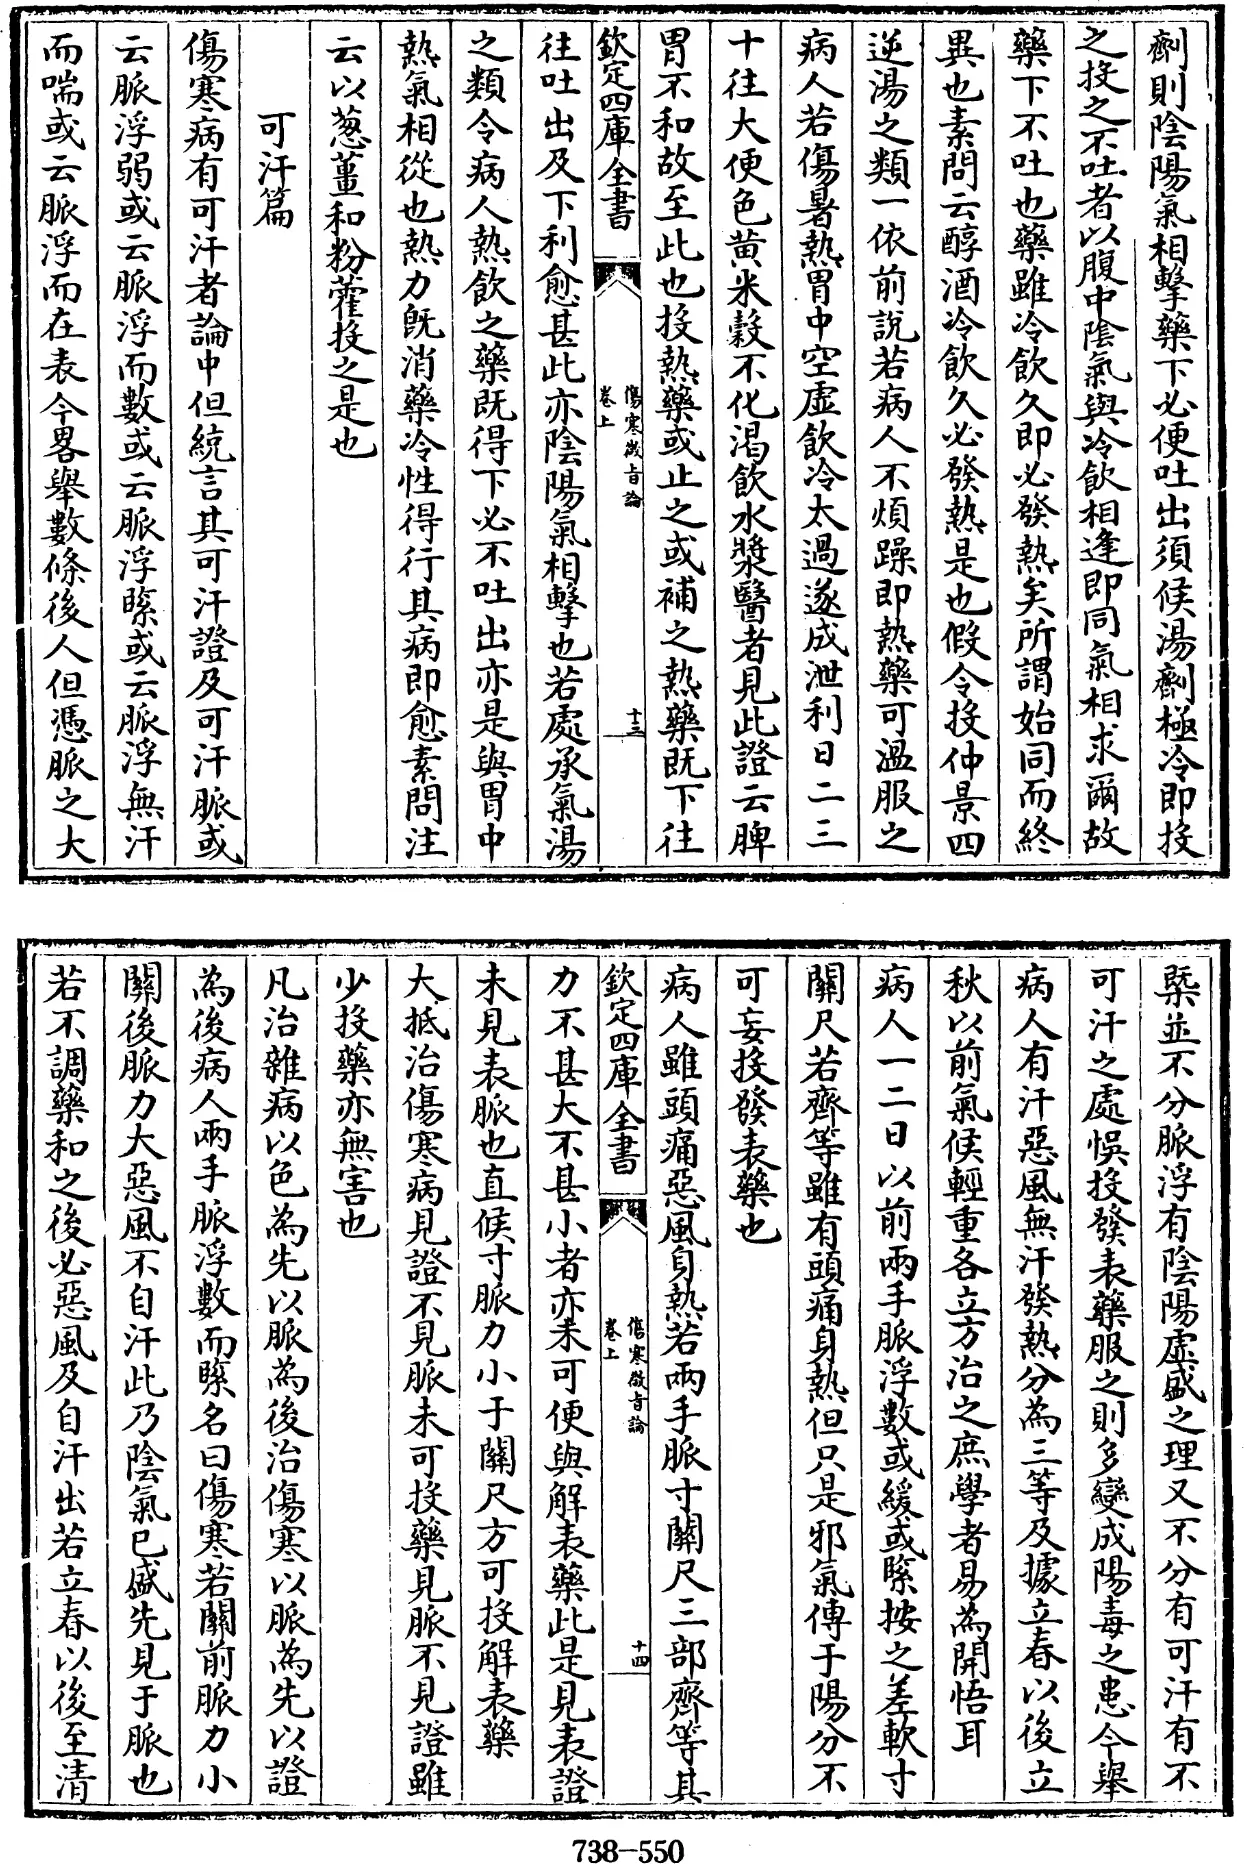 劑則陰陽氣相擊藥下必便吐出須候湯劑極冷即投
之投之不吐者以腹中陰氣與冷飲相逢即同氣相求爾故
藥下不吐也藥雖冷飲久即必發熱矣所謂始同而終
異也素問云醇酒冷飲久必發熱是也假令投仲景四
逆湯之類一依前說若病人不煩躁即熱藥可溫服之
病人若傷暑熱胃中空虛飲冷太過遂成泄利日二三
十往大便色黄米穀不化渴飲水漿醫者見此證云脾
胃不和故至此也投熱藥或止之或補之熱藥既下往
欽定四庫全書
傷寒微旨論
卷上
十三
往吐出及下利愈甚此亦陰陽氣相擊也若處承氣湯
之類令病人熱飲之藥既得下必不吐出亦是與胃中
熱氣相從也熱力既消藥冷性得行其病即愈素問注
云以葱薑和粉藿投之是也
可汗篇
傷寒病有可汗者論中但統言其可汗證及可汗脈或
云脈浮弱或云脈浮而數或云脈浮緊或云脈浮無汗
而喘或云脈浮而在表今畧舉數條後人但憑脈之大
槩並不分脈浮有陰陽虛盛之理又不分有可汗有不
可汗之處悞投發表藥服之則多變成陽毒之患今舉
病人有汗惡風無汗發熱分為三等及據立春以後立
秋以前氣候輕重各立方治之庶學者易為開悟耳
病人一二日以前兩手脈浮數或緩或緊按之差軟寸
關尺若齊等雖有頭痛身熱但只是邪氣傳于陽分不
可妄投發表藥也
病人雖頭痛惡風身熱若兩手脈寸關尺三部齊等其
欽定四庫全書
傷寒微旨論
卷上
十四
力不甚大不甚小者亦未可便與解表藥此是見表證
未見表脈也直候寸脈力小于關尺方可投解表藥
大抵治傷寒病見證不見脈未可投藥見脈不見證雖
少投藥亦無害也
凡治雜病以色為先以脈為後治傷寒以脈為先以證
為後病人兩手脈浮數而緊名曰傷寒若關前脈力小
關後脈力大惡風不自汗此乃陰氣已盛先見于脈也
若不調藥和之後必惡風及自汗出若立春以後至清
738-550